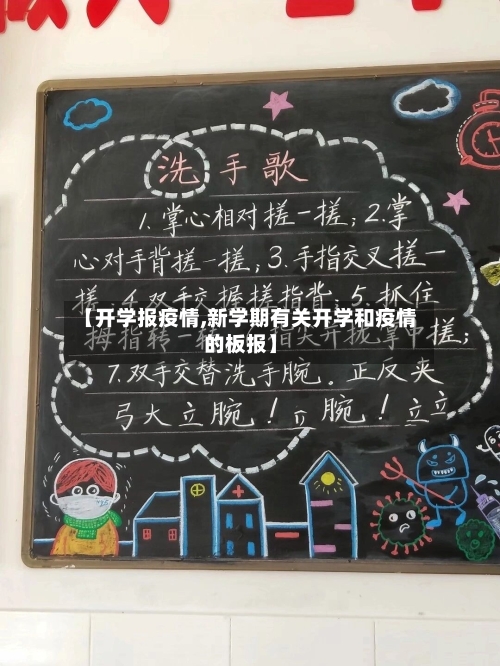 洗手歌
1.掌心相对搓一搓;2.掌
心对手背搓一搓;3.手指交叉搓一
搓 4.双手交握搓指背;5.抓住
【开学报疫情,新学期有关开学和疫情
的板报】
拇指转一转 指尖并拢掌中搓;
7.双手交替洗手腕。正反夹
弓大立腕!立腕!立立